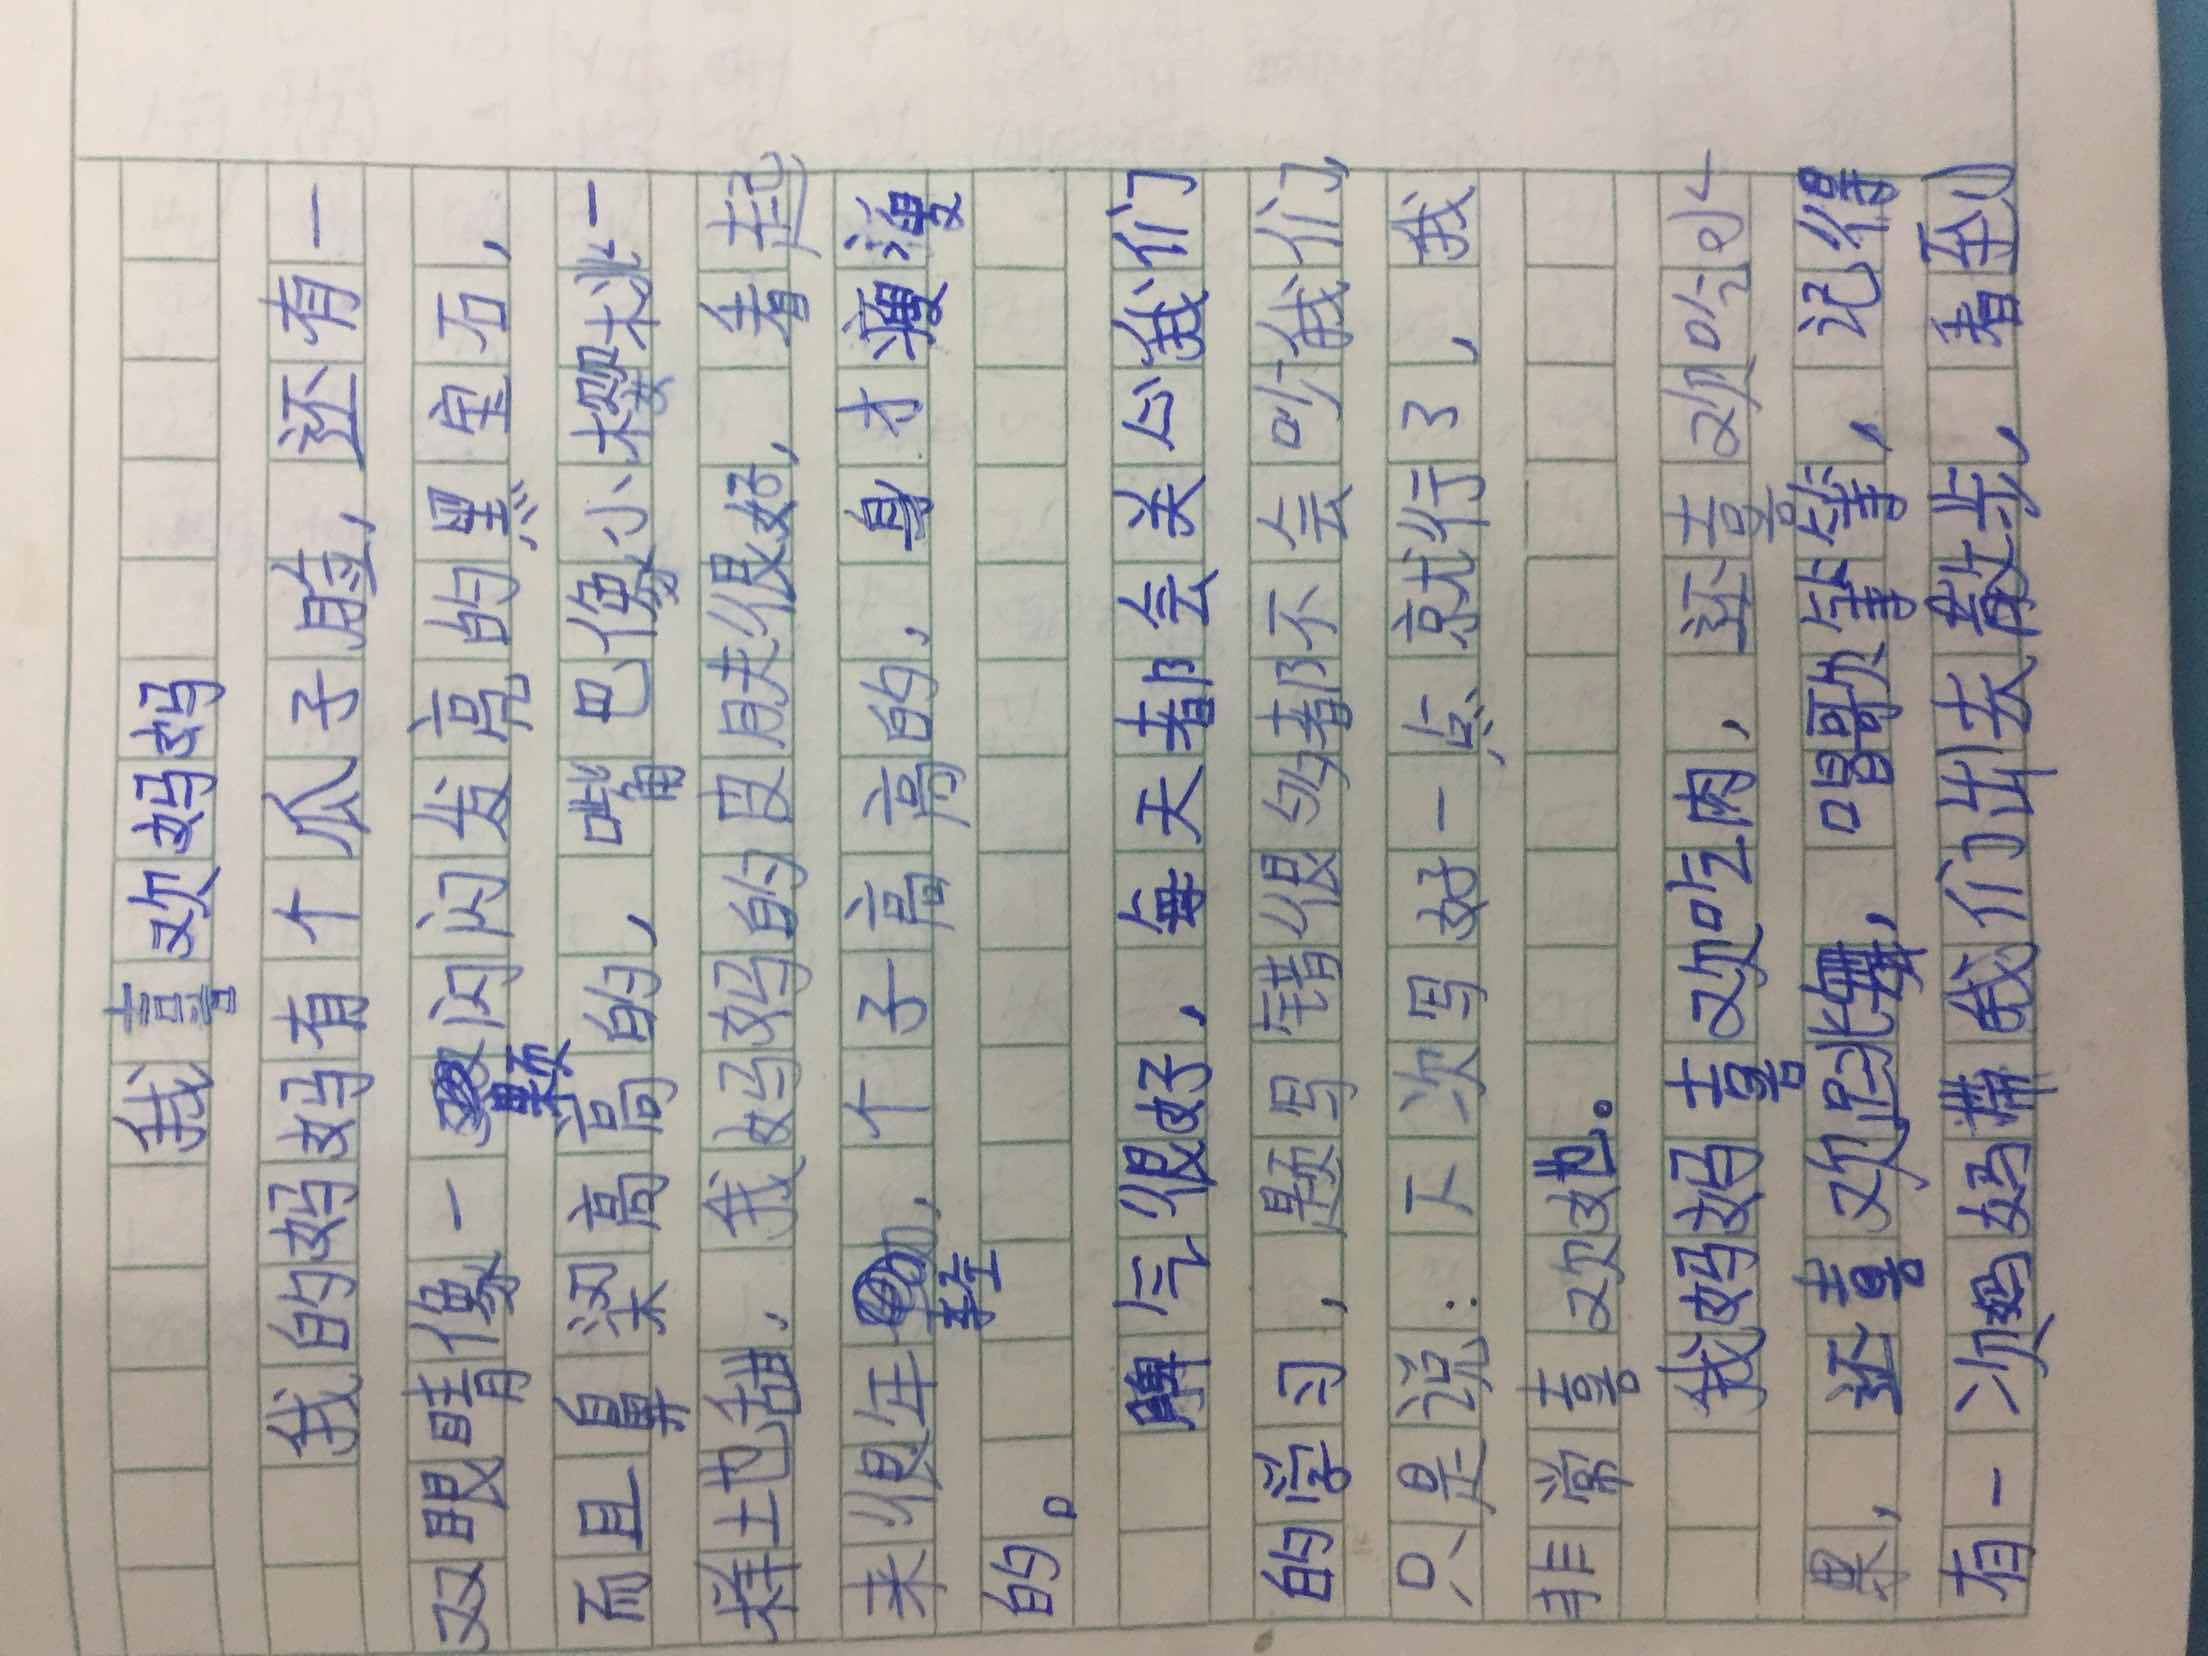 我喜欢妈妈
我的妈妈有个瓜子脸，还有一
双眼睛像一颗闪闪发亮的黑宝石，
而且鼻梁高高的，嘴巴像小樱桃一
样土也甜，我妈妈的皮肤很好，看起
来很年轻，个子高高的，身才瘦瘦
的。
脾气很好，每天都会关心我们
的学习，题写错很多都不会吵我们，
只是说：下次写好一点就行了，我
非常喜欢她。
我妈妈喜欢吃肉，还喜欢吃水
果，还喜欢跳舞，唱歌等等，记得
有一次妈妈带我们出去散步，看到